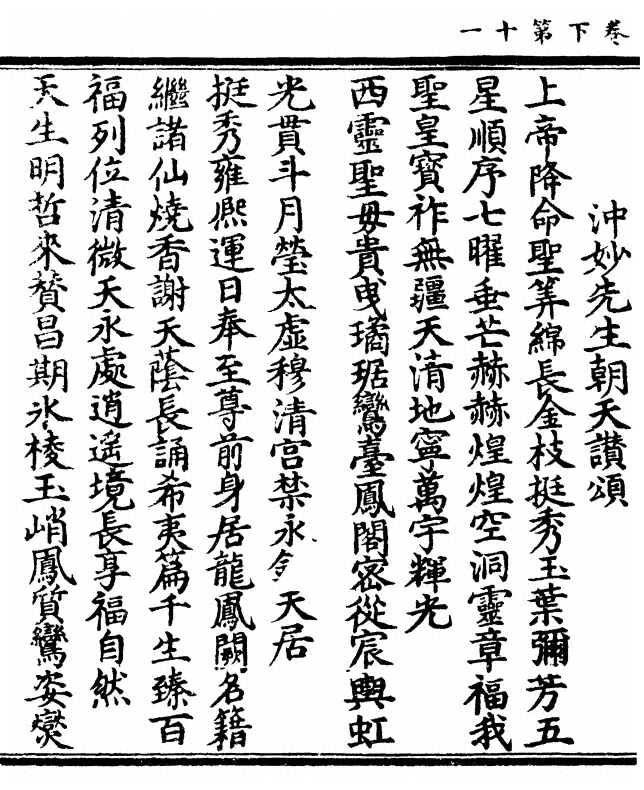 卷下第十一
沖妙先生朝天讃頌
上帝降命聖筭綿長金枝挺秀玉葉彌芳五
星順序七曜垂芒赫赫煌煌空洞靈章福我
聖皇寳祚無疆天清地寧萬宇輝光
西靈聖毋貴曵璚琚鸞臺鳳閣密從宸輿虹
光貫斗月瑩太虛穆清宫禁永天居
挺秀雍熈運日奉至尊前身居龍鳳闕名籍
繼諸仙燒香謝天蔭長誦希夷篇千生臻百
福列位清微天永處逍遥境長享福自然
天生明哲來贊昌期氷棱玉峭鳳質鸞姿爕